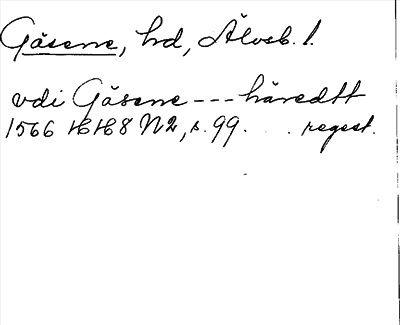 Gäsene, hd, Älvsb. l.
vdi Gäsene --- häredtt
1566 HH8 N2, s. 99. . . regest.